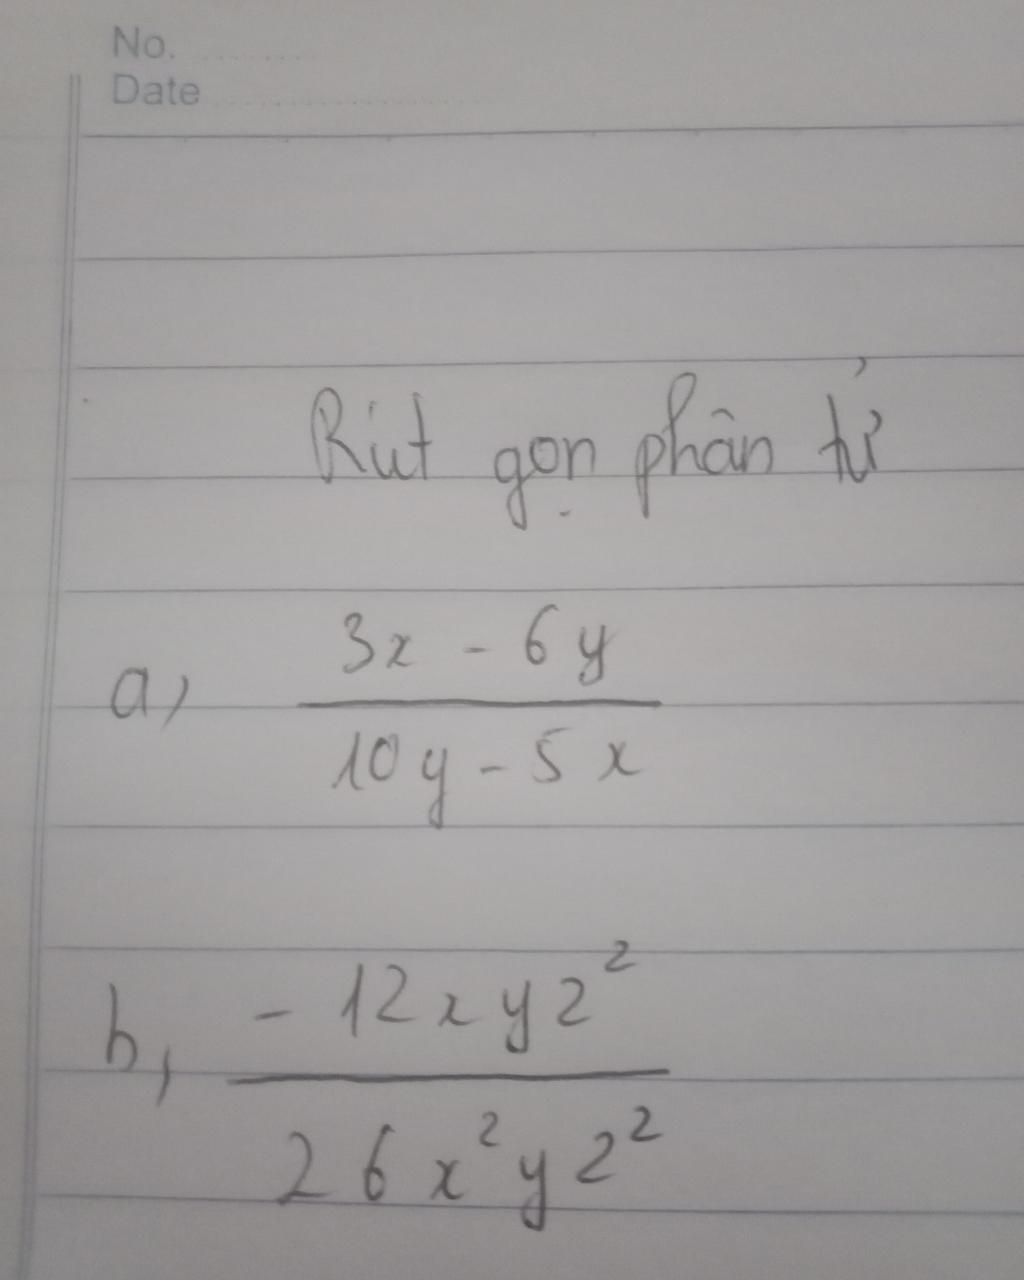 No.
Date
Rút gọn phân tử
a, \frac{3x - 6y}{10y - 5x}
b, \frac{-12xyz^2}{26x^2yz^2}